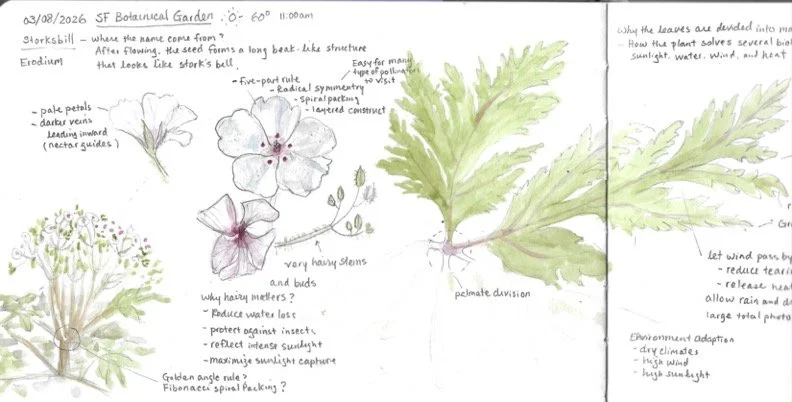 03/08/2026 SF Botanical Garden 60° 11:00am
Storksbill - where the name come from?
Erodium
After flowing, the seed forms a long beak-like structure
that looks like stork's bell.
- pale petals
- darker veins
leading inward
(nectar guides)
- five-part rule
- Radical symmentry
- spiral packing
- layered construct
Easy for many
type of pollinators
to visit
very hairy stems
and buds
Why hairy matters?
- Reduce water loss
- protect against insects
- reflect intense sunlight
- maximize sunlight capture
Golden angle rule?
Fibonacci spiral Packing?
palmate division
Why the leaves are devided into
- How the plant solves several
sunlight, water, wind, and heat
let wind pass by
- reduce
- release
allow rain and
large total
Environment adaption
- dry climates
- high wind
- high sunlight